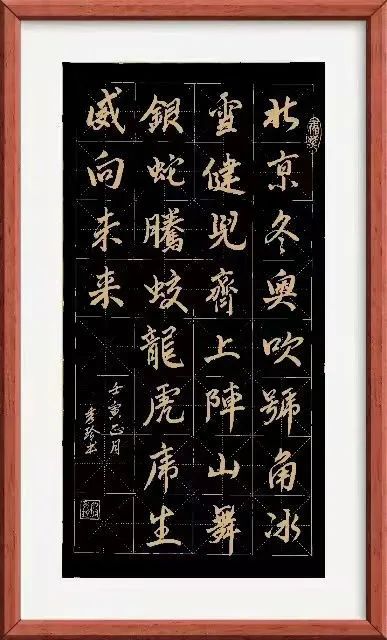 北京冬奥吹號角冰
雪健兒齊上陣山舞
銀蛇騰蛟龍虎虎生
威向未来
壬寅正月
秀玲书